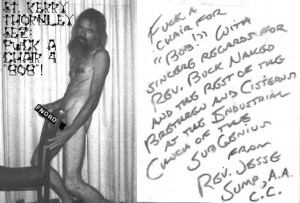 ST. KERRY
THORNLEY
SEZ:
FUCK A
CHAIR 4
"BOB"!
FNORD
FUCK A
CHAIR FOR
"BOB"!) WITH
SINCERE REGARDS FOR
REV. BUCK NAKED
AND THE REST OF THE
BRETHREN AND CISTERNS
AT THE INDUSTRIAL
CHURCH OF THE
SUBGENIUS
FROM
REV. JESSE
SUMP, A.A.
C.C.